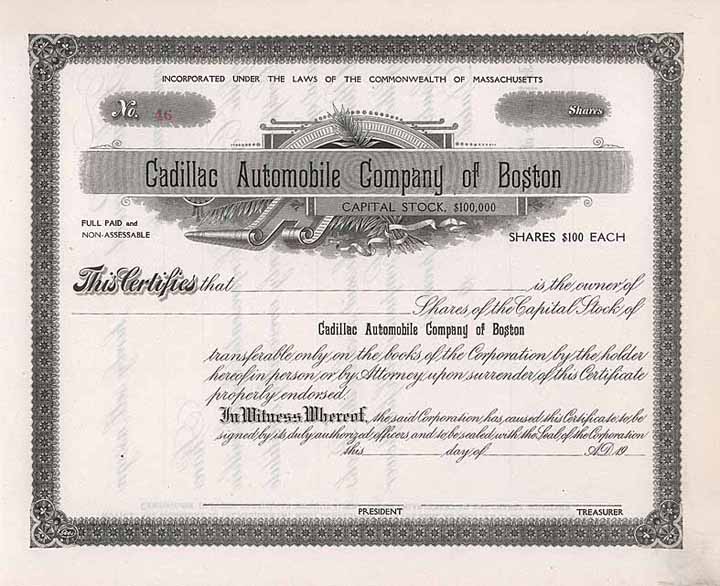 INCORPORATED UNDER THE LAWS OF THE COMMONWEALTH OF MASSACHUSETTS
No. 46 Shares
Cadillac Automobile Company of Boston
CAPITAL STOCK, $100,000
FULL PAID and
NON-ASSESSABLE
SHARES $100 EACH
This Certifies that is the owner of
Shares of the Capital Stock of
Cadillac Automobile Company of Boston
transferable only on the books of the Corporation by the holder
hereof in person or by Attorney upon surrender of this Certificate
properly endorsed.
In Witness Whereof, the said Corporation has caused this Certificate to be
signed by its duly authorized officers and to be sealed with the Seal of the Corporation
this day of A.D. 19
PRESIDENT TREASURER